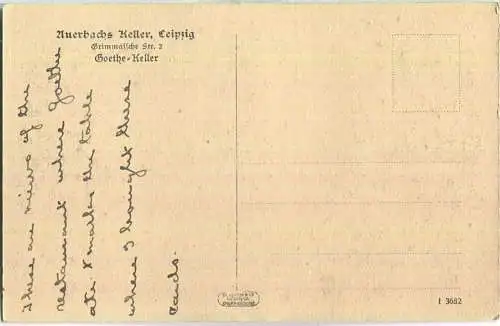 Auerbachs Keller, Leipzig
Grimmaische Str. 2
Goethe-Keller
These are views of the
restaurant where Goethe
ate. I marked the table
where I bought these
cards.
I 3682